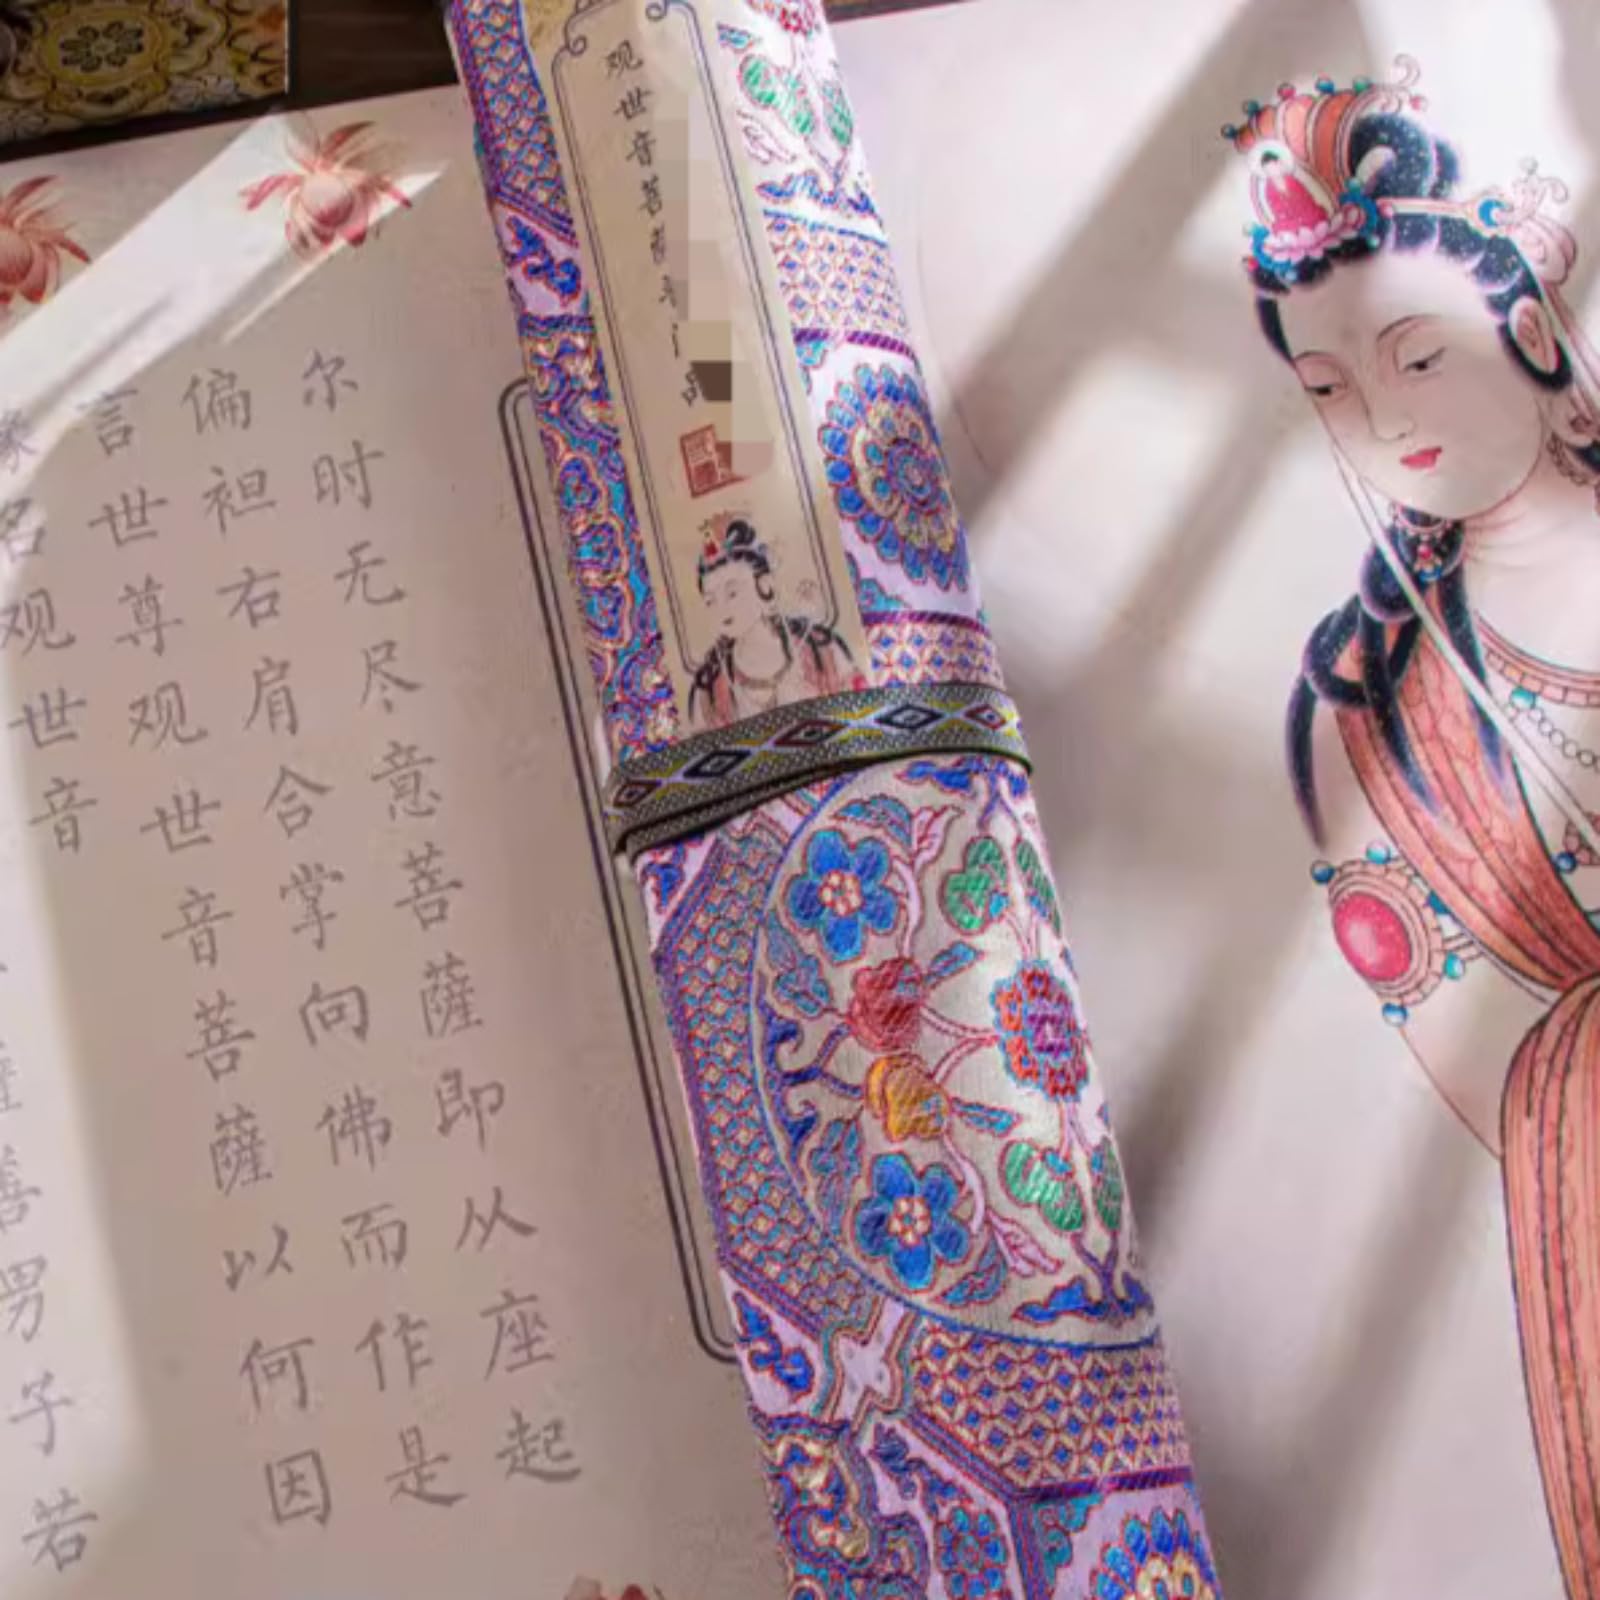 观世音菩
尔时无尽意菩薩即从座起
偏袒右肩合掌向佛而作是
言世尊观世音菩薩以何因
名观世音
善男子若